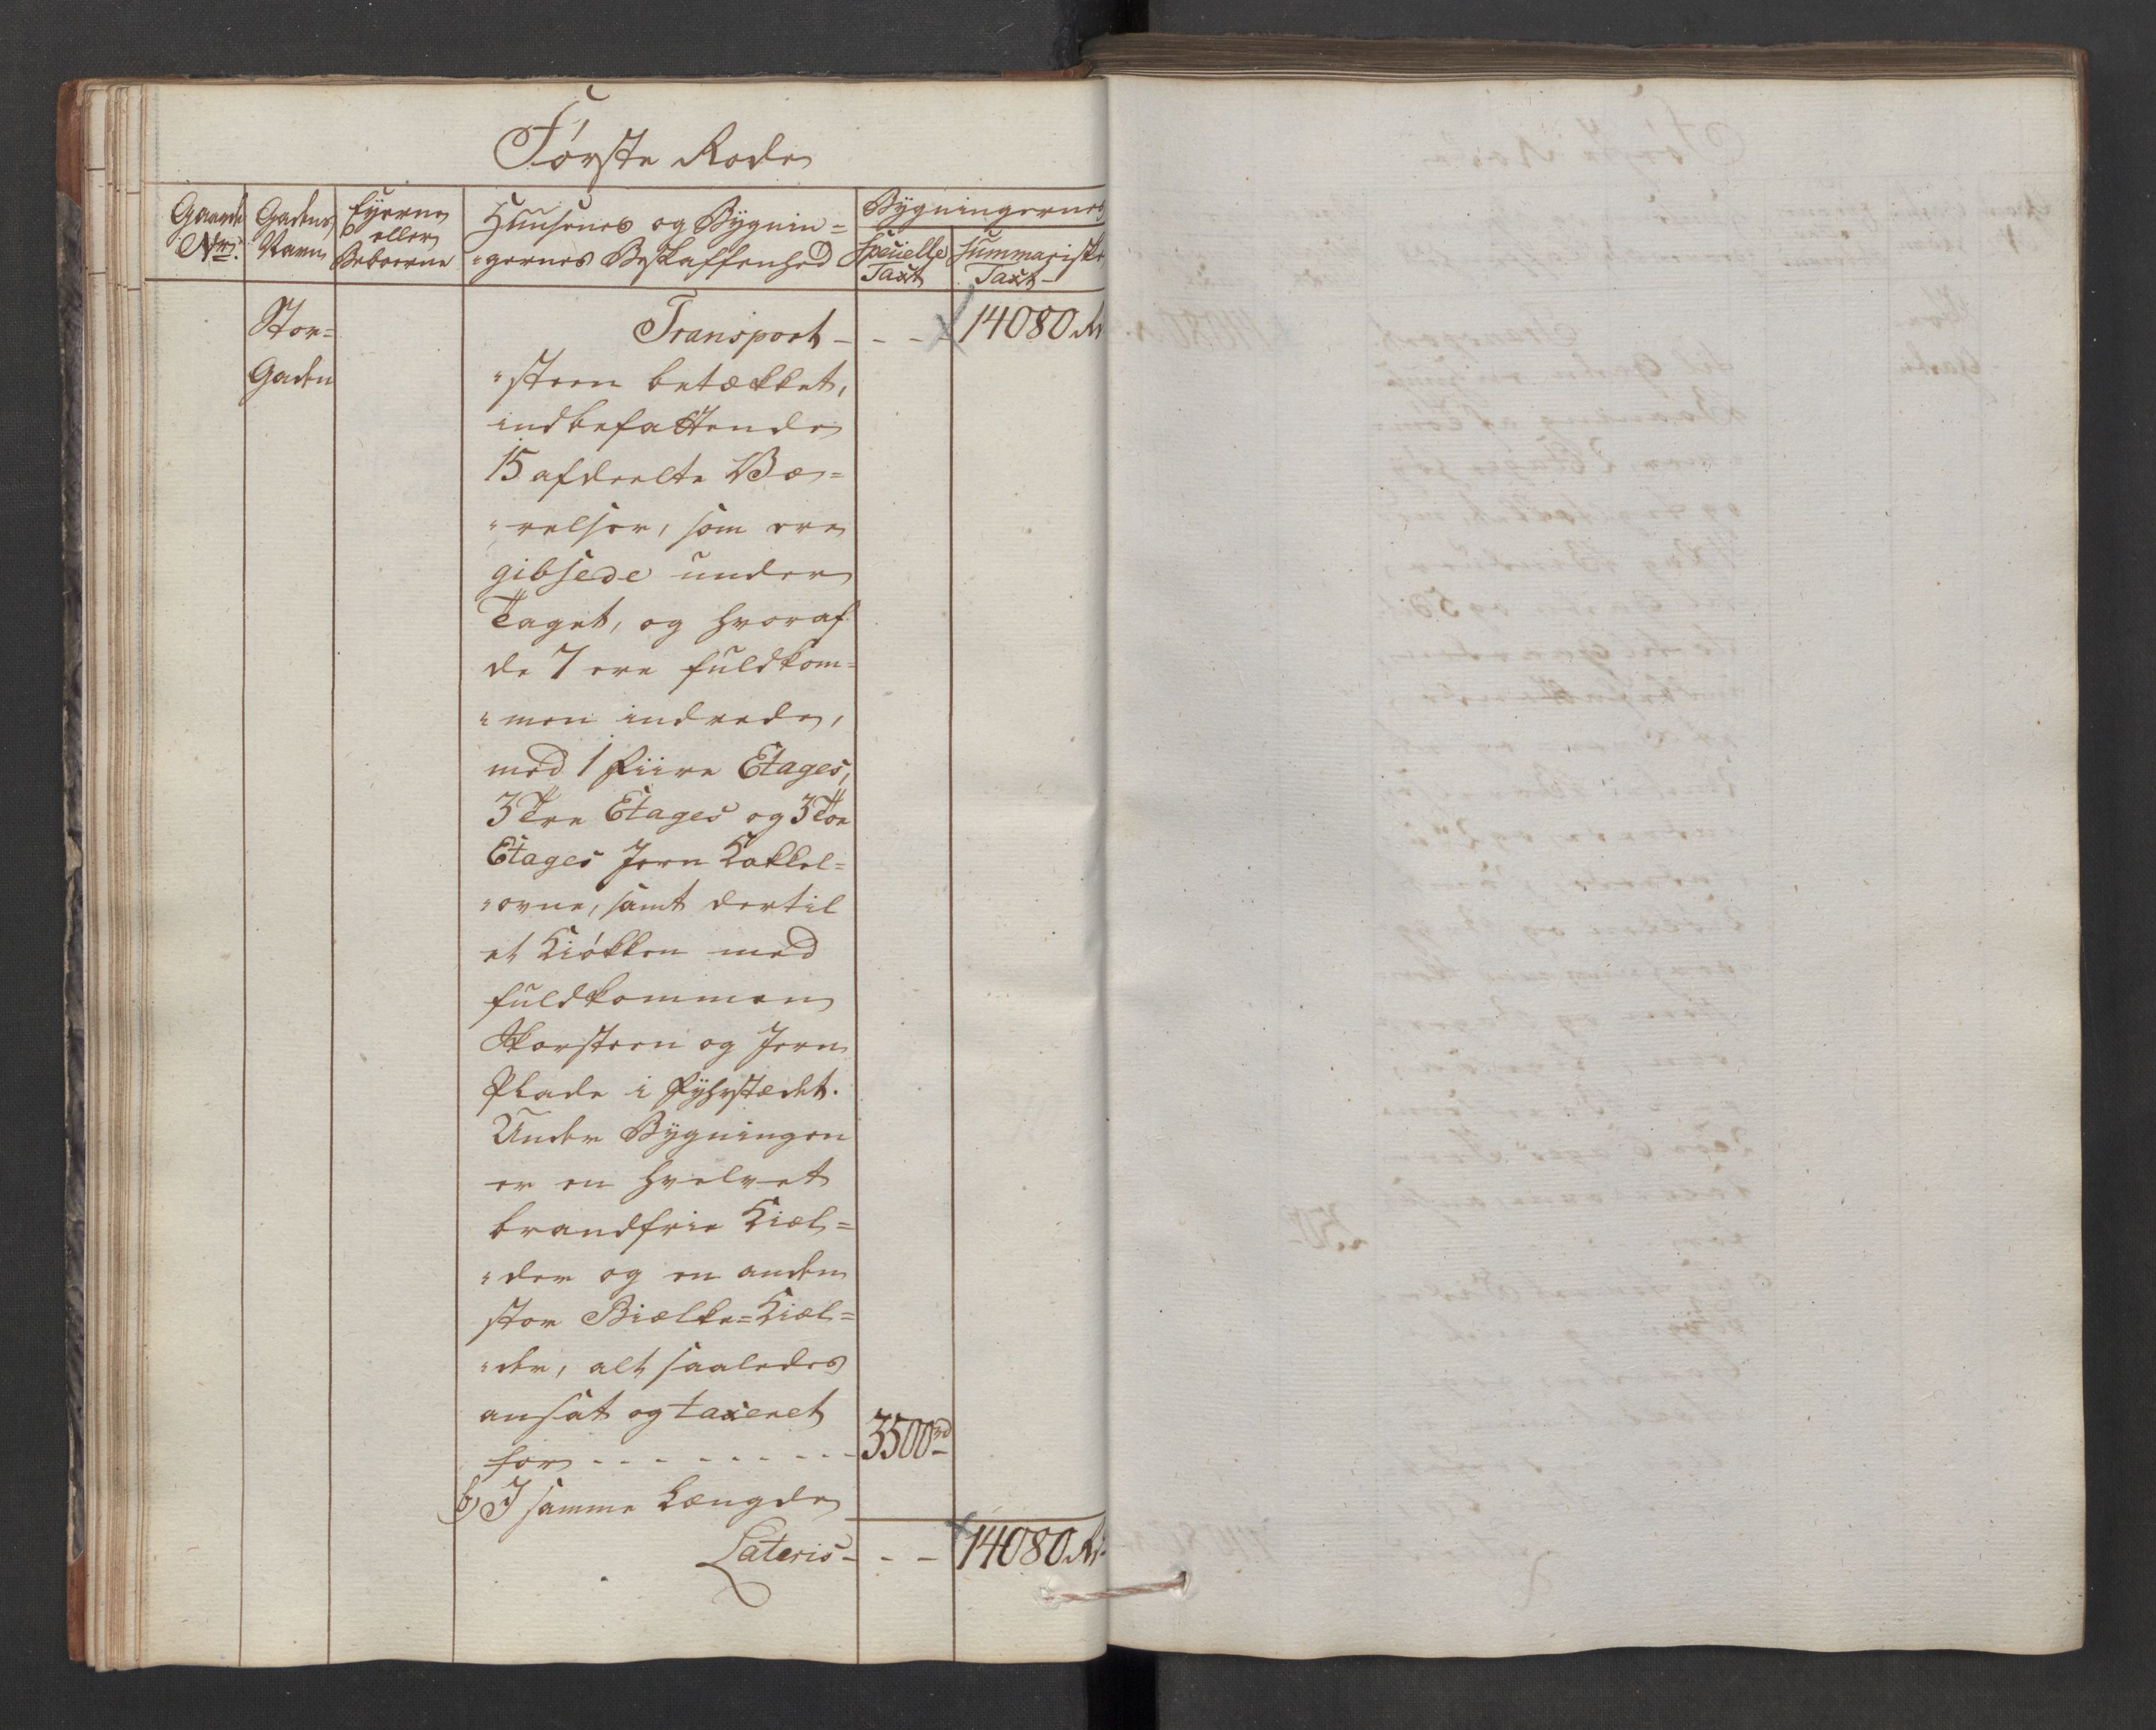 Første Rode
Gaarde Nr:
Gadens Navn
Eyerne eller Beboerne
Huusenes og Bygnin=
"gernes Beskaffenhed
Bygningernes
Specielle Taxt
Summariske Taxt
Stor=
Gaden
Transport - - - 14080 Rd
"steen betækket,
indbefattende
15 afdeelte Væ=
"relser, som ere
gibsede under
Taget, og hvoraf
de 7 ere fuldkom=
"men indrede,
med 1 fiire Etages,
3 Tre Etages og 3 Toe
Etages Jern Kakkel=
"ovne, samt dertil
et Kiøkken med
fuldkommen
Skorsteen og Jern
Plade i Fyhrstædet.
Under Bygningen
er en hvelvet
brandfrie Kiæl=
"der og en anden
stor Bielke=Kiæl=
"der, alt saaledes
ansat og taxeret
for - - - - - - - - - 3500 rd
b) J samme Længde
Lateris - - - 14080 Rd